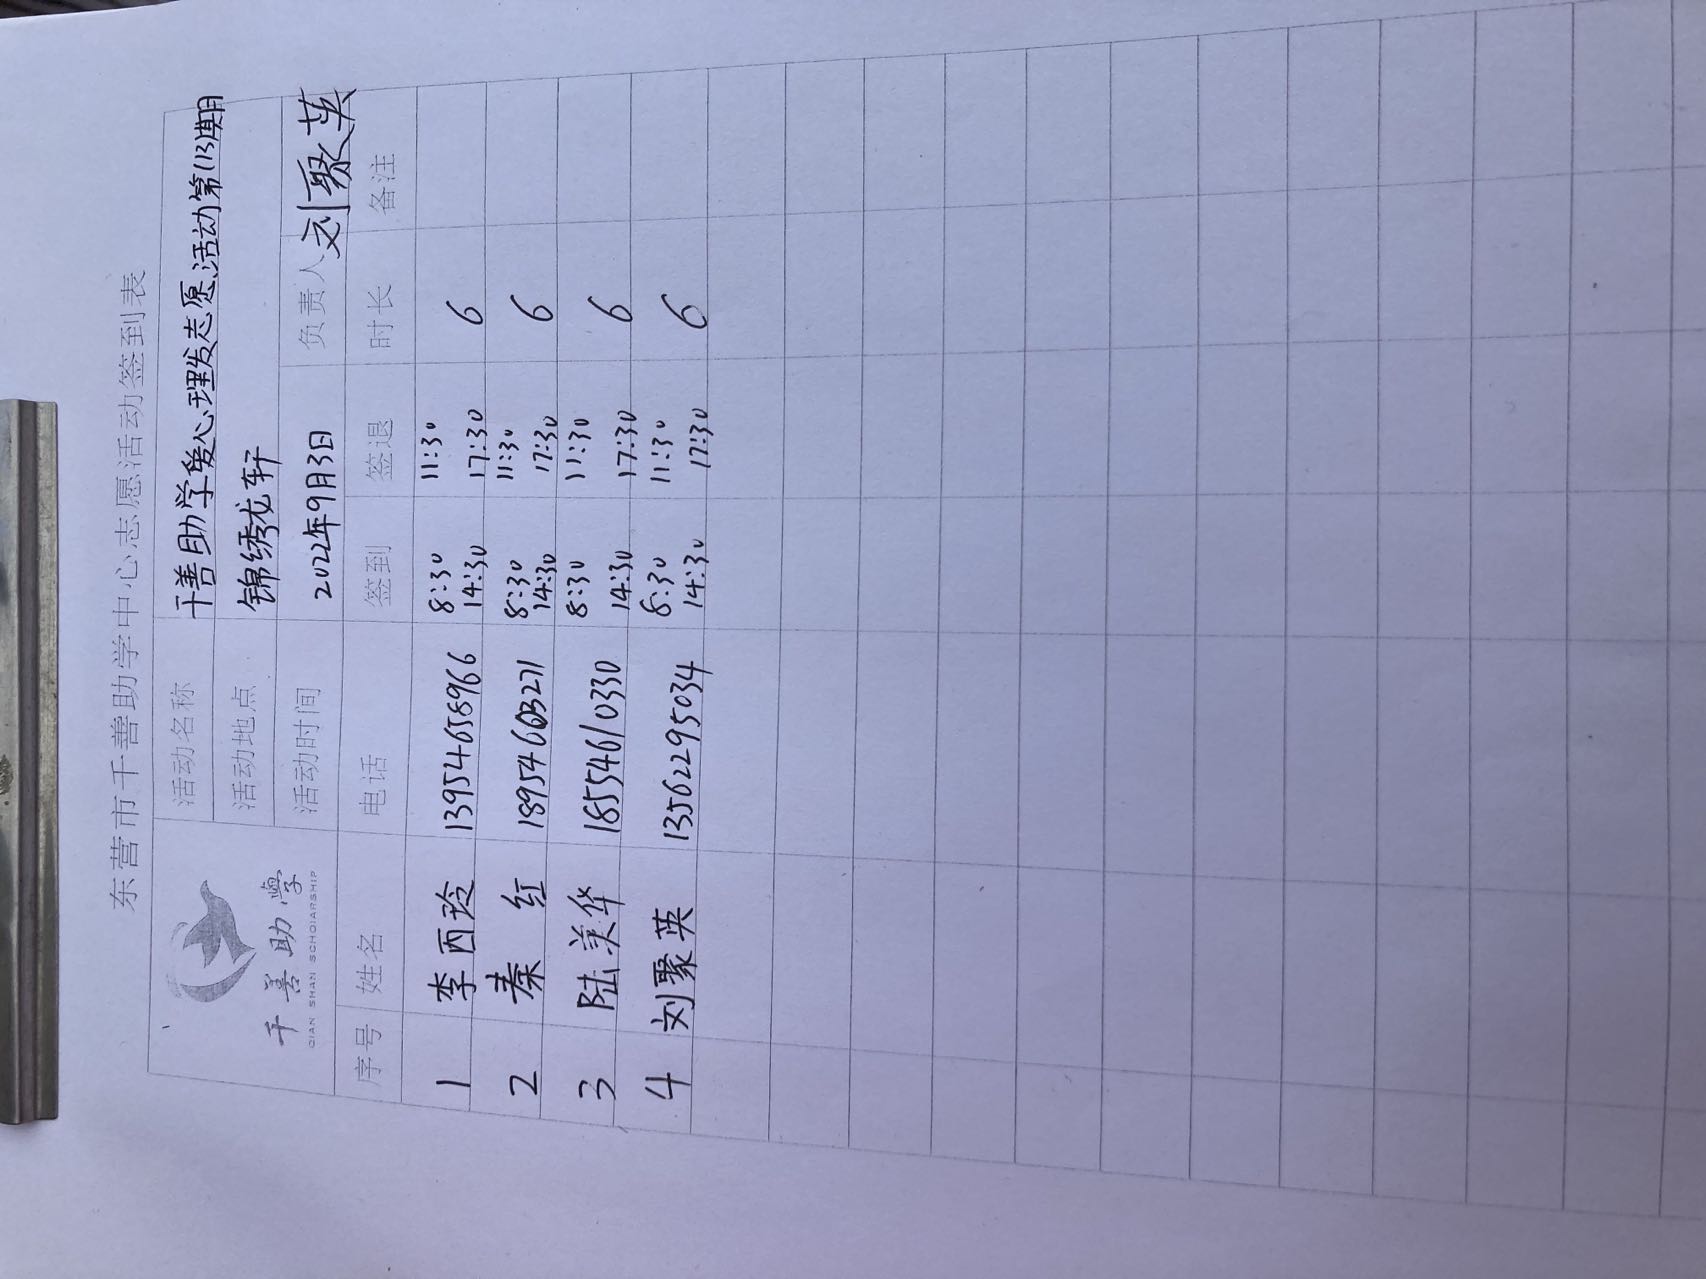 东营市千善助学中心志愿活动签到表
千善助学
QIAN SHAN SCHOIARSHIP
活动名称 千善助学爱心理发志愿活动第(13)期
活动地点 锦绣龙轩
活动时间 2022年9月3日 负责人 刘聚英
序号 姓名 电话 签到 签退 时长 备注
1 李西玲 13954658966 8:30 11:30 6
14:30 17:30
2 秦红 18954603271 8:30 11:30 6
14:30 17:30
3 陆美华 18554610330 8:30 11:30 6
14:30 17:30
4 刘聚英 13562295034 8:30 11:30 6
14:30 17:30